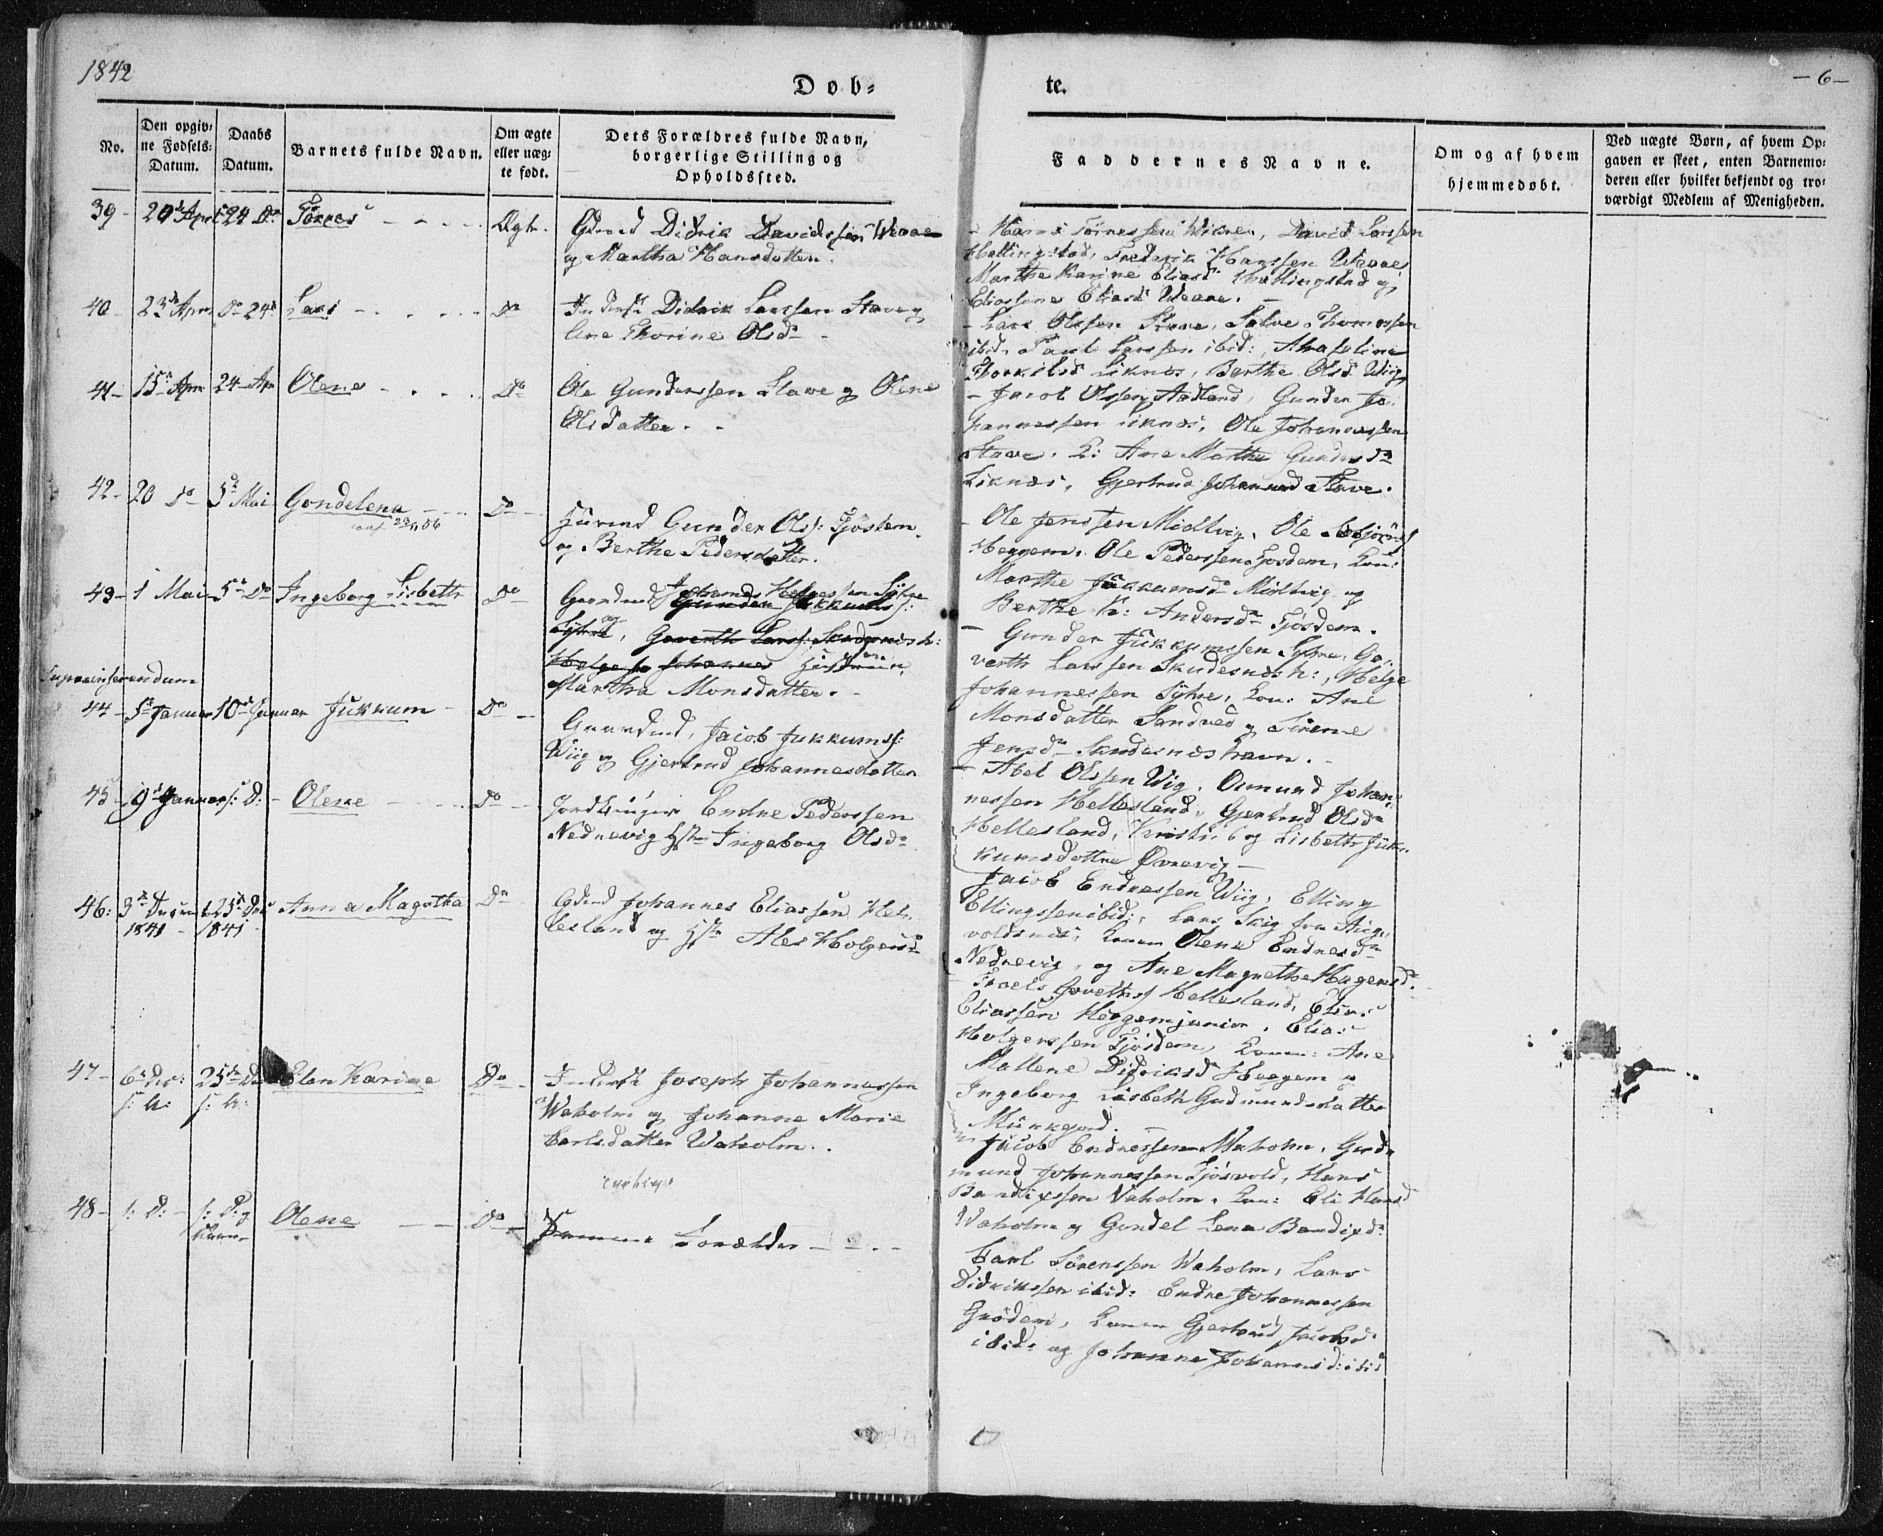 1842
Døb-
te.
-6-
No.
Den opgiv-
ne Fødsels-
Datum.
Daabs
Datum.
Barnets fulde Navn.
Om ægte
eller uæg-
te født.
Dets Forældres fulde Navn,
borgerlige Stilling og
Opholdssted.
Faddernes Navne.
Om og af hvem
hjemmedøbt.
Ved uægte Børn, af hvem Op-
gaven er skeet, enten Barnemo-
deren eller hvilket bekjendt og tro-
værdigt Medlem af Menigheden.
39- 20de Apr 24 Do Tørres Ægte Didrik Davidssen Weaae
og Martha Hansdatter.
Hans Tørressen Wikre, David Larssen
Hallingstad, Frederik Hanssen Weaae,
Marthe Karine Eliasd Hallingstad og
Eliasine Eliasd Weaae.
40- 23de Apr Do 24de Lars Do Inderst Didrik Larssen Stave og
Ane Thorine Olsd
- Lars Olssen Stave, Salve Thomassen
ibid, Larssen ibid:,
Thorkilsd Liknes, Berthe Olsd Wiig
41- 15de Apr 24 Apr Olene Do Ole Gunderssen Stave og Olene
Olsdatter.
- Jacob Olssen Aadland, Gunder Jo-
hannessen Liknes, Ole Johannessen
Stave. K: Ane Marthe Gundersd
Liknes, Gjertrud Johannesd Stave.
42- 20 Do 5de Mai Gondelena Do Gunder Ols: Tjøstem
og Berthe Pedersdatter.
- Ole Jenssen Midtvig, Ole
Heggem, Ole Pederssen Tjosdem, Kon:
Marthe Jukkumsd Midtvig og
Berthe K: Andersd Tjøsdem.
43- 1 Mai 5te Do Ingeborg Lisbeth Do Gaardmd Johannes Helgessen Syhre
Gunder Jukkums:
Syhre, og Goverth Larss: Skudesnesh:
Helge Johannes
Martha Monsdatter.
- Gunder Jukkumssen Syhre, Go-
verth Larssen Skudesnesh:, Helge
Johannessen Syhre, Kon: Ane
Monsdatter Sandved og Sirene
Jensd Skudesneshavn.
44- 5te Januar 10de Januar Jukkum Do Gaardmd, Jacob Jukkums:
Wiig og Gjertrud Johannesdatter
- Abel Olssen Wig, Osmund Johan-
nessen Hellesland, Gjertrud Olsd
Hellesland, og Lisbeth Juk-
kumsdatter Øvrevig
45- 9de Januar s: D: Olene Do Jordbruger Endre Pederssen
Nedrevig Hstr Ingeborg Olsd
Jacob Endressen Wiig, Elling
Ellingssen ibid:, Lars fra
Konen Olene Endresd
Nedrevig, og Ane Magrethe Hagensd.
46: 3de 1841 25de 1841 Anna Magretha Do Johannes Eliassen Hel-
lesland og Hstr Ales Holgersd
Hellesland, Elias
Eliassen Heggem junior, Elias
Holgerssen Tjøsdem, Konen: Ane
Mallene Didriksd Heggem og
Ingeborg Lisbeth Gudmundsdatter
47- 6te Dec: s: A: 25de s: A: Elen Karine Do Inderst Joseph Johannessen
Waholm og Johanne Marie
Carlsdatter Waholm.
Jacob Endressen Waholm, Gud-
mund Johannessen Tjøsvold, Hans
Bendixssen Vaholm, Kon: Eli Hansd
Waholm og Gundel Lena Bendixd:
48- s: D: s: D: og Olene Do Samme Forældre
Carl Sørenssen Waholm, Lars
Didrikssen ibid: Endre Johannessen
Grødem, Konen Gjertrud Jacobsd
ibid: og Johanne Johannesd: ibid